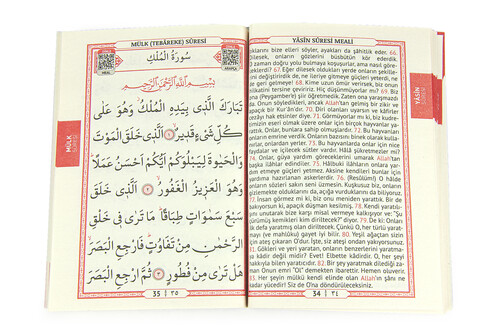 MÜLK (TEBÂREKE) SÛRESİ
سُورَةُ الْمُلْكِ
بِسْمِ اللّٰهِ الرَّحْمٰنِ الرَّحِيمِ
تَبَارَكَ الَّذ۪ى بِيَدِهِ الْمُلْكُ وَهُوَ عَلٰى
كُلِّ شَىْءٍ قَد۪يرٌ ۙ ﴿١﴾ اَلَّذ۪ى خَلَقَ الْمَوْتَ
وَالْحَيٰوةَ لِيَبْلُوَكُمْ اَيُّكُمْ اَحْسَنُ عَمَلًا
وَهُوَ الْعَز۪يزُ الْغَفُورُ ۙ ﴿٢﴾ اَلَّذ۪ى خَلَقَ
سَبْعَ سَمٰوَاتٍ طِبَاقًا مَا تَرٰى ف۪ى خَلْقِ
الرَّحْمٰنِ مِنْ تَفَاوُتٍ فَارْجِعِ الْبَصَرَ
هَلْ تَرٰى مِنْ فُطُورٍ ﴿٣﴾ ثُمَّ ارْجِعِ الْبَصَرَ
35 | ٣٥
MÜLK
SÛRESİ
YÂSÎN SÛRESİ MEALİ
dıklarını bize elleri söyler, ayakları da şâhitsik eder. 66.
O zaman doğru yolu bulmaya koşuşurlar, ama nasıl göre-
cekler! 67. Eğer dilesek oldukları yerde onların şekille-
rini değiştirirdik de, ne ileriye gitmeye güçleri yeterdi, ne
de geri gelmeye! 68. Kime uzun ömür verirsek, biz onun
hilkatini tersine çeviririz. Hiç düşünmüyorlar mı? 69. Biz
ona (Peygamber'e) şiir öğretmedik. Zaten ona yaraşmazdı
da. Onun söyledikleri, ancak Allah'tan gelmiş bir zikir ve
apaçık bir Kur'ân'dır. 70. Diri olanları uyarsın ve kâfirler
azâbı hak etsinler diye. 71. Görmüyorlar mı ki, biz kud-
retimizin eseri olmak üzere onlar için birçok hayvanlar ya-
rattık. Onlar, bunlara sahip olmuşlardır. 72. Bu hayvanları
onların emrine verdik. Onlardan bir kısmı binekleridir, bir
kısmını da yerler. 73. Bu hayvanlarda onlar için nice
faydalar ve içilecek sütler vardır. Hâlâ şükretmezler mi?
74. Onlar, güya yardım göreceklerini umarak Allah'tan
başka ilâhlar edindiler. 75. Hâlbuki ilâhların onlara yar-
dım etmeye güçleri yetmez. Aksine kendileri bunlar için
yardıma hazırlanan askerlerdir. 76. (Resûlüm!) O hâlde
onların sözleri sakın seni üzmesin. Kuşkusuz biz, onların
gizlemekte olduklarını da, açığa vurduklarını da biliyoruz.
77. İnsan görmez mi ki, biz onu meniden yarattık. Bir de
bakıyorsun ki, apaçık düşman kesilmiş. 78. Kendi yaratılı-
şını unutarak bize karşı misal vermeye kalkışıyor ve "Şu
çürümüş kemikleri kim diriltecek?" diyor. 79. De ki: Onları
ilk defa yaratmış olan diriltecek. Çünkü O, her türlü yarat-
mayı (ve mahlûku) gayet iyi bilir. 80. Yeşil ağaçtan sizin
için ateş çıkaran O'dur. İşte, siz ateşi ondan yakıyorsunuz.
81. Gökleri ve yeri yaratan, onların benzerlerini yaratma-
ya kâdir değil midir? Evet! Elbette kâdirdir. O, her şeyi
hakkıyla bilen yaratıcıdır. 82. Bir şey yaratmak dilediği za-
man Onun emri "Ol" demekten ibarettir. Hemen oluverir.
83. Her şeyin mülkü kendi elinde olan Allah'ın şânı ne
kadar yücedir! Siz de O'na döndürüleceksiniz.
34 | ٣٤
YÂSÎN
SÛRESİ